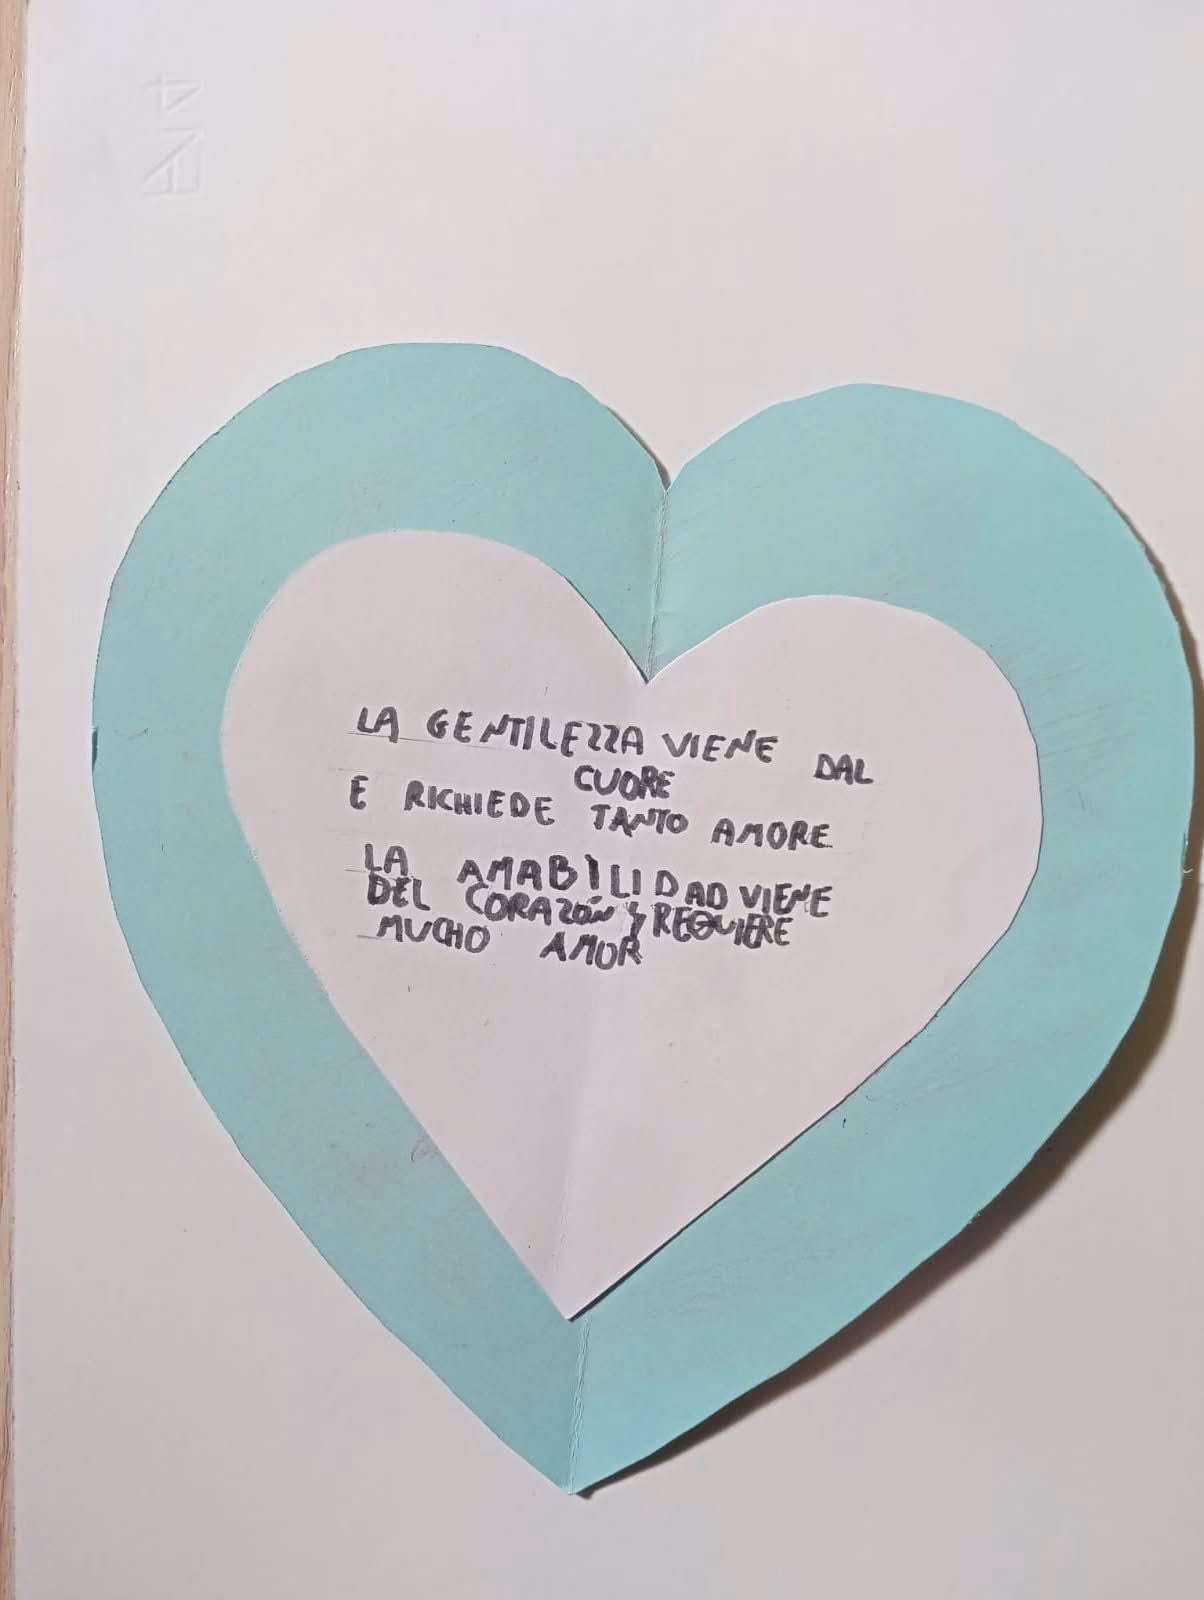 LA GENTILEZZA VIENE DAL
CUORE
E RICHIEDE TANTO AMORE
LA AMABILIDAD VIENE
DEL CORAZÓN Y REQUIERE
MUCHO AMOR